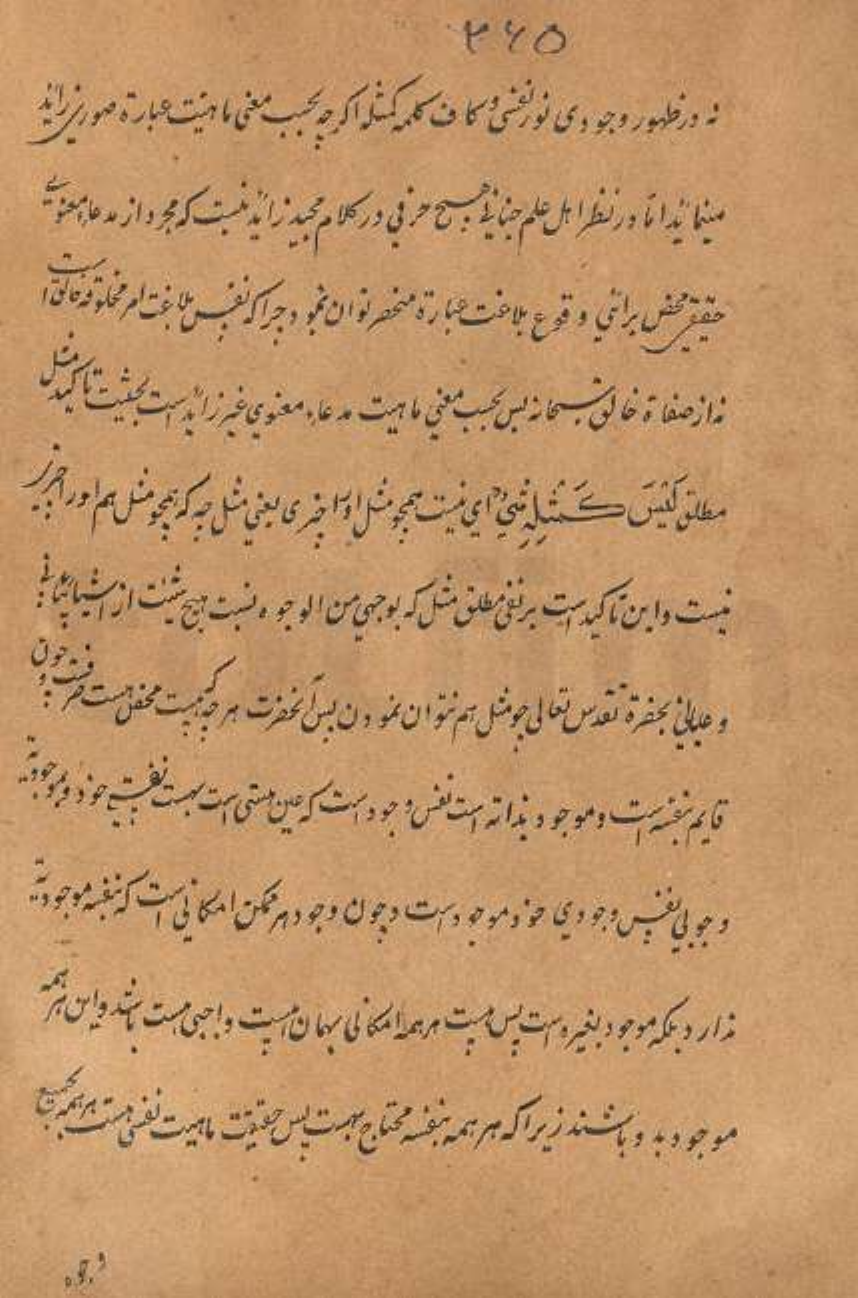 ۳۶۵
نه در ظهور وجودی نور نفسی و کاف کلمه کمثله اکرچه بحسب معنی ماهیت عبارة صوری زائد
مینماید اما در نظر اهل علم جنانی هیچ حرفی در کلام مجید زائد نیست که مجرد از مدعاء معنوی
حقیقی محض برای وقوع بلاغت عبارة منحصر توان نمود چراکه نفس بلاغت امر مخلوقه خالق است
نه از صفاة خالق سبحانه پس بحسب معنی ماهیت مدعاء معنوی غیر زائد است بحیثیت تاکید مثل
مطلق لَیْسَ کَمِثْلِهِ شَیْءٌ ای نیست همچو مثل او را چیزی یعنی مثل چه که همچو مثل هم او را چیزی
نیست و این تاکید است بر نفی مطلق مثل که بوجهی من الوجوه نسبت هیچ شیئت از اشیا
و بحضرة تقدس تعالی چو مثل هم نتوان نمودن پس آنحضرت هرچه که هست محض هست صرفست و چون
قایم بنفسه است و موجود بذاته است نفس وجود است که عین هستی است بهست نفسیت خود و بموجودیة
وجوبی نفس وجودی خود موجود است و چون وجود هر ممکن امکانی است که بنفسه موجودیة
ندارد بلکه موجود بغیر است پس هست هر همه امکانی بهمان هست واجبی هست باشد و این هر همه
موجود بدو باشند زیراکه هر همه بنفسه محتاج بهست پس حقیقت ماهیت نفسی هست هر همه بجمیع